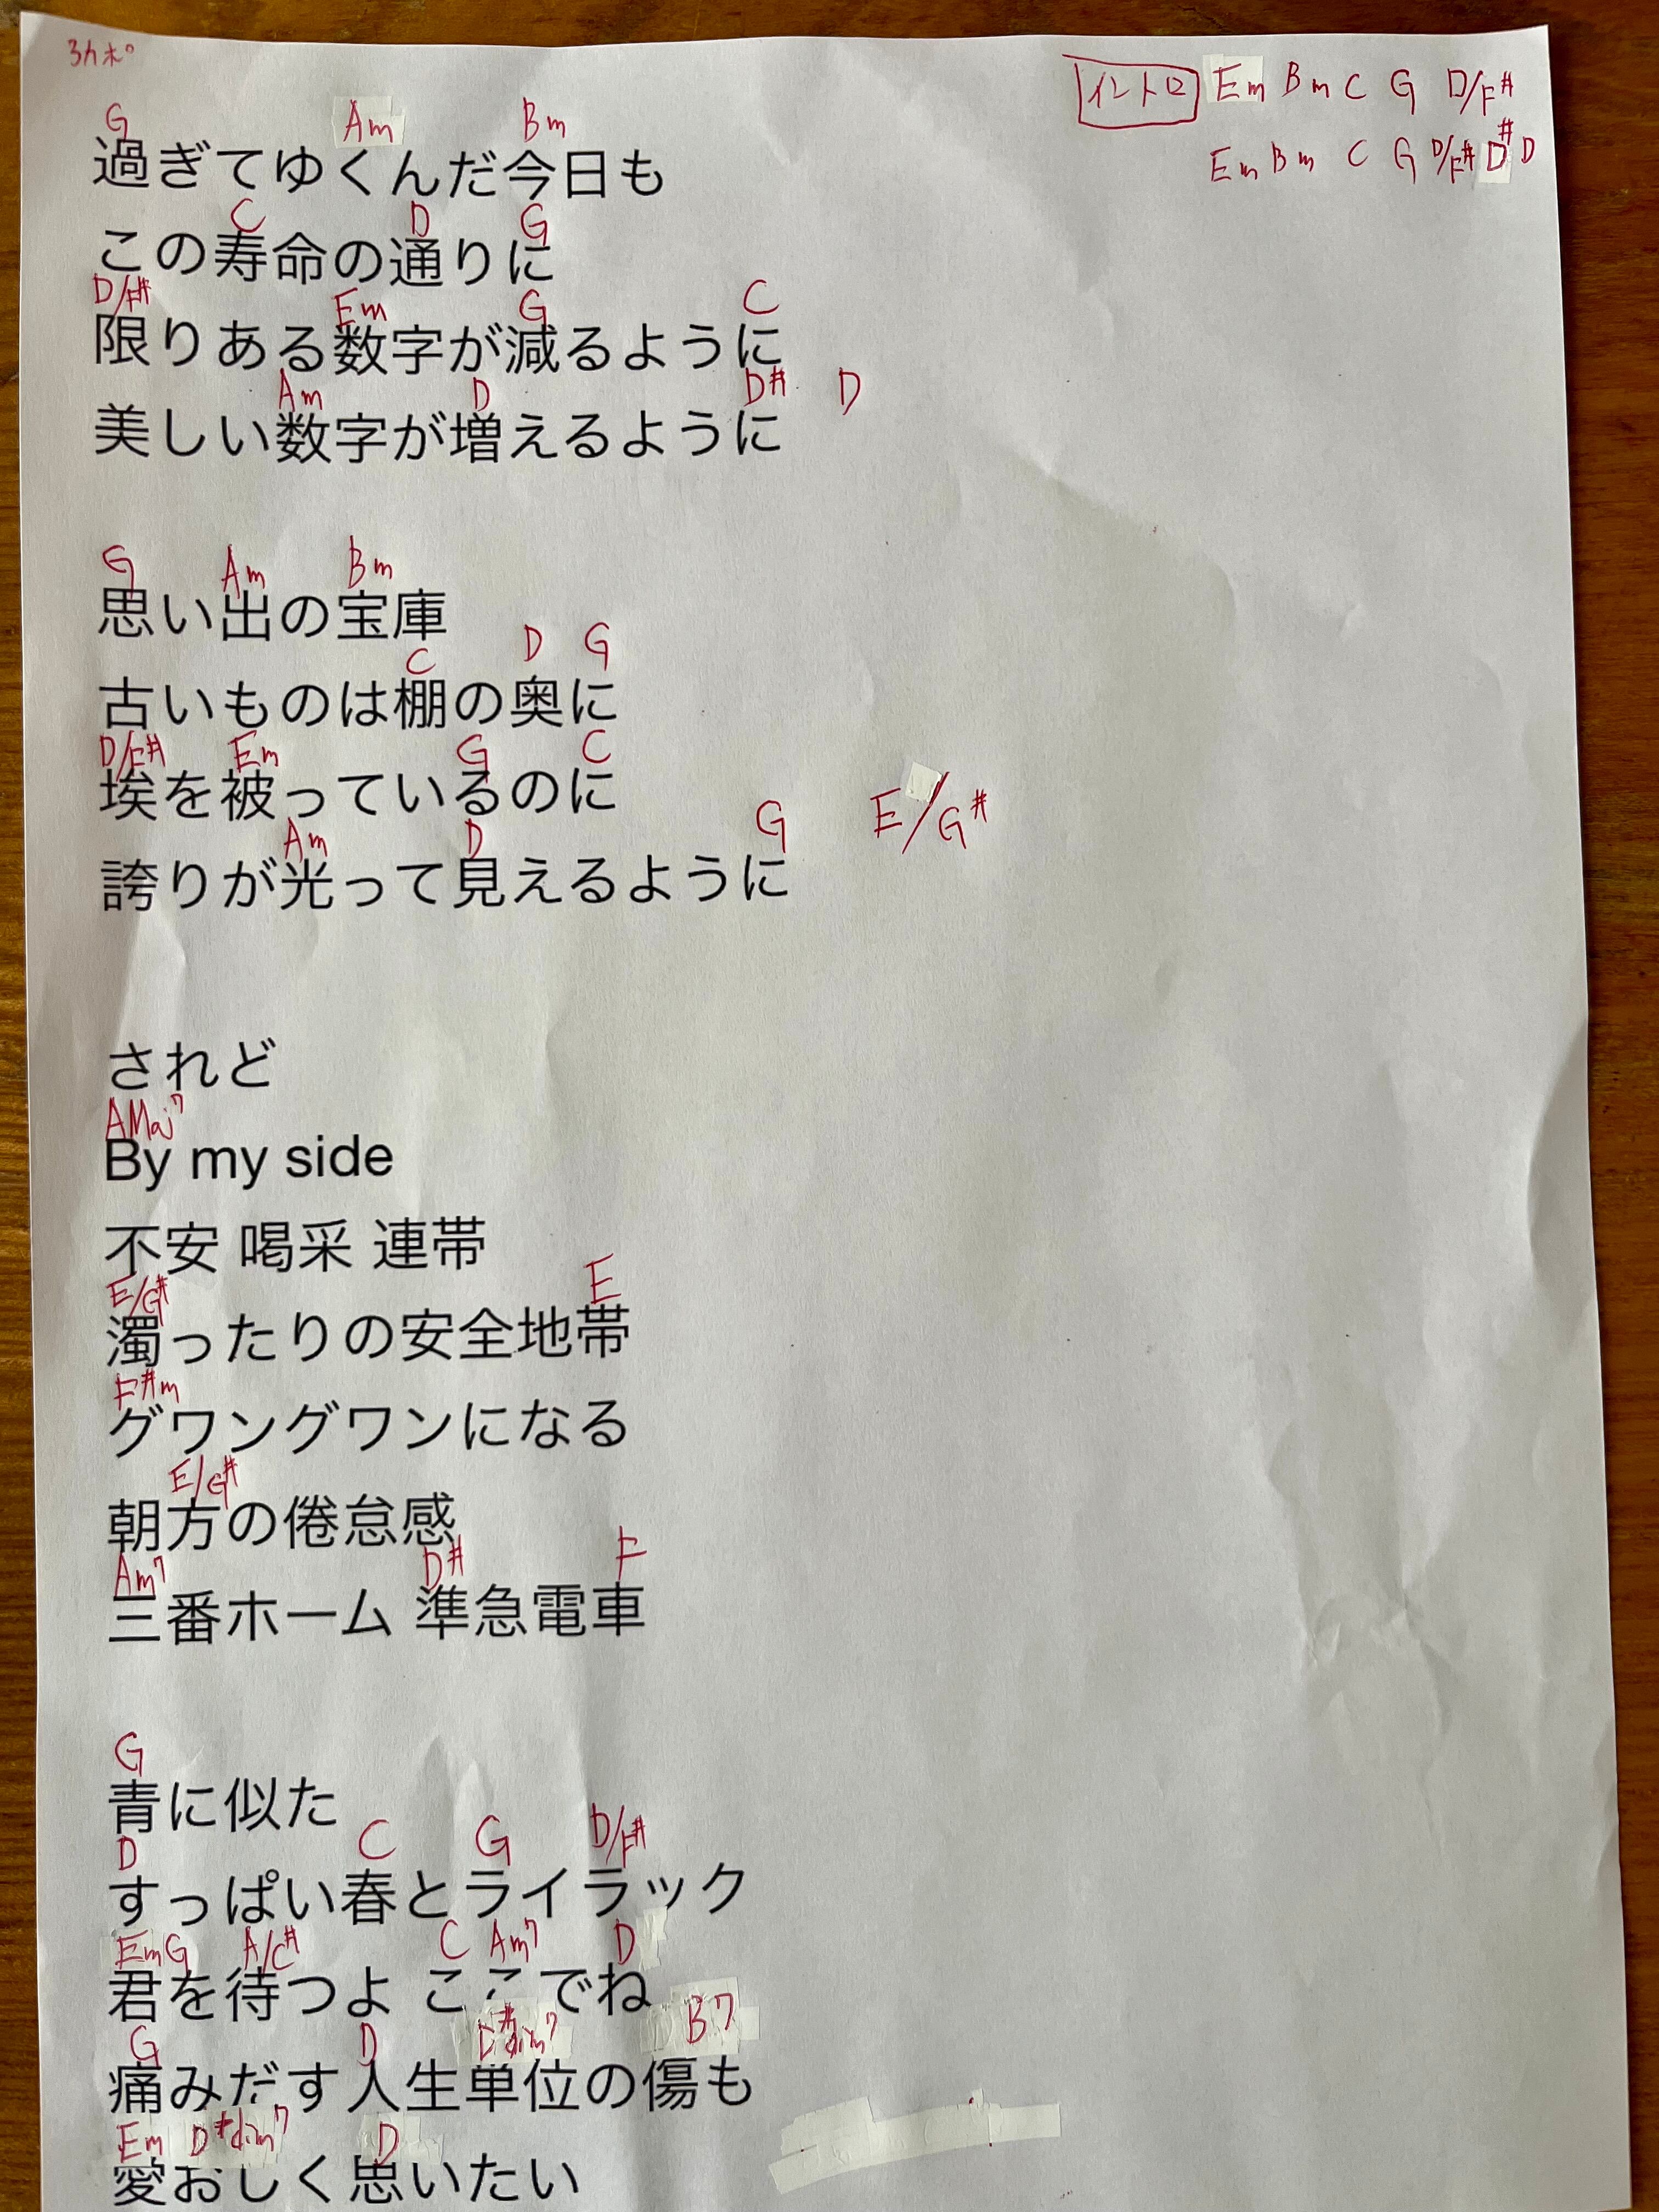 3カポ
イントロ Em Bm C G D/F#
Em Bm C G D/F# D# D
G Am Bm
過ぎてゆくんだ今日も
C D G
この寿命の通りに
D/F# Em G C
限りある数字が減るように
Am D D# D
美しい数字が増えるように
G Am Bm
思い出の宝庫
C D G
古いものは棚の奥に
D/F# Em G C
埃を被っているのに
Am D G E/G#
誇りが光って見えるように
されど
AMaj7
By my side
不安 喝采 連帯
E/G# E
濁ったりの安全地帯
F#m
グワングワンになる
E/G#
朝方の倦怠感
Am7 D# F
三番ホーム 準急電車
G
青に似た
D C G D/F#
すっぱい春とライラック
Em G A/C# C Am7 D
君を待つよ ここでね
G D D#dim7 B7
痛みだす人生単位の傷も
Em D#dim7 D
愛おしく思いたい